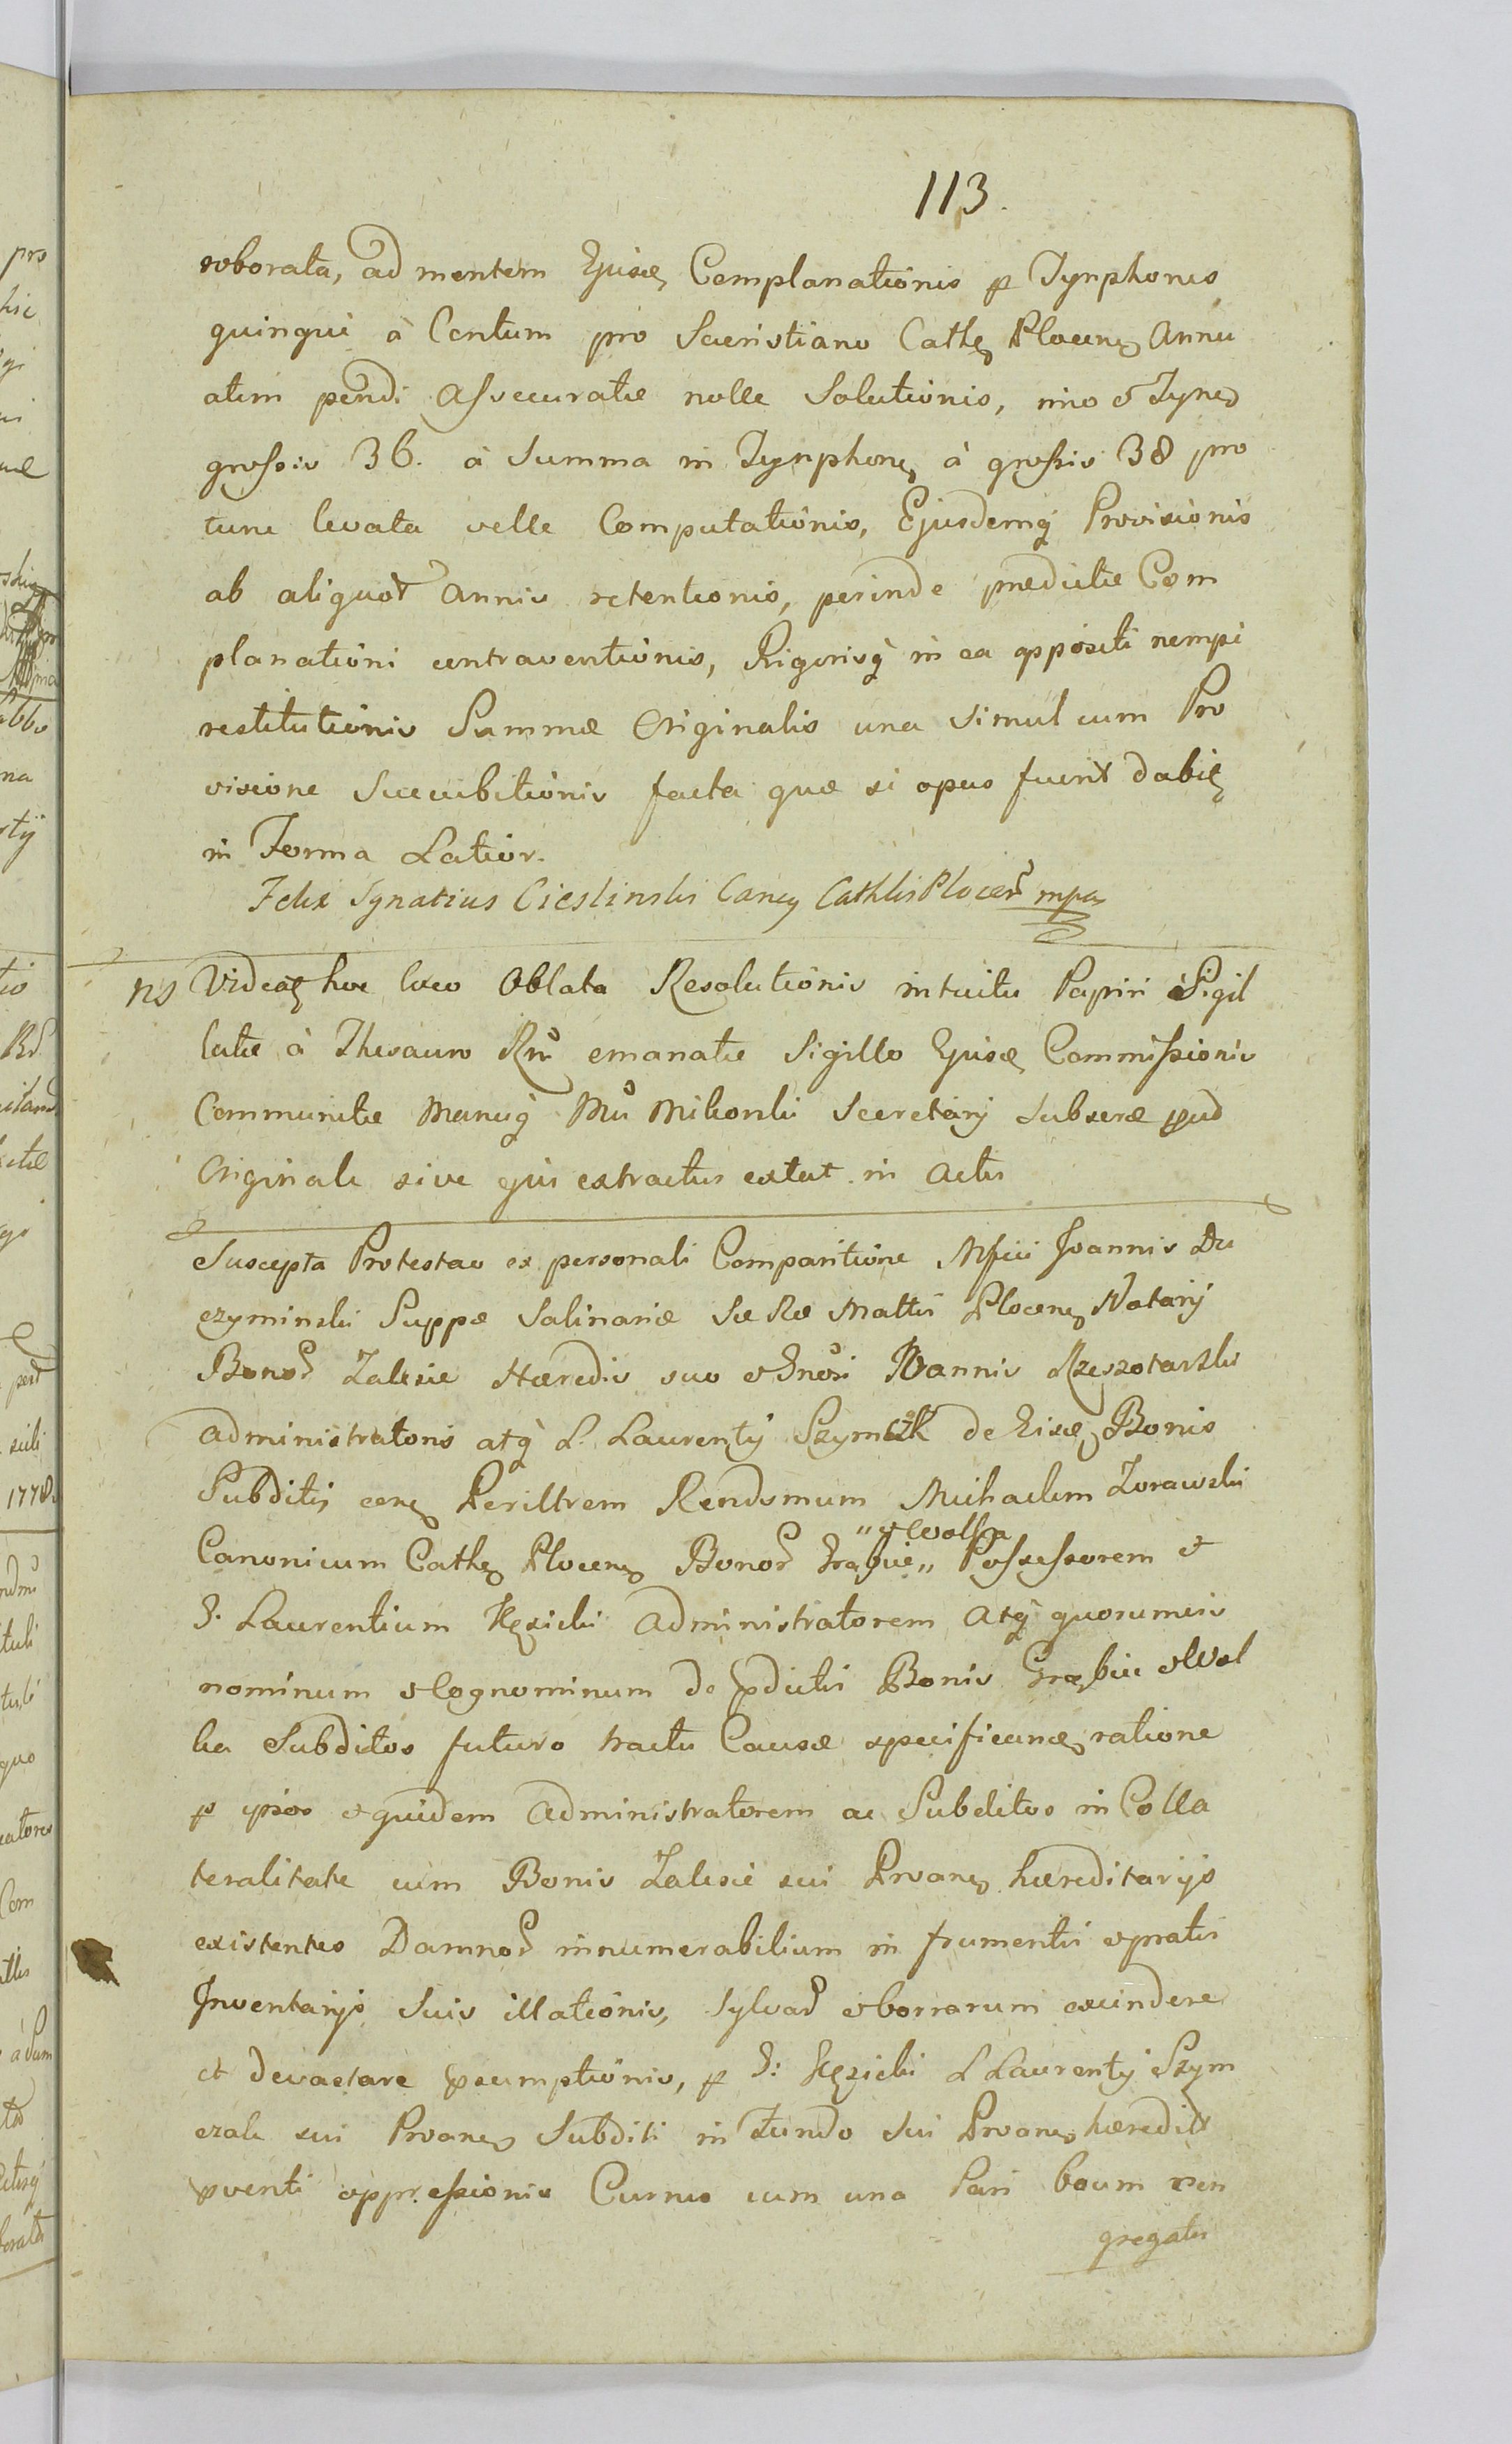 113.
roborata, ad mentem Ejusd Complanationis p Tynphones
quinque à Centum pro Sacristiano Cathe Plocens Annu
atim pendi Assecuratæ nolle Solutionis, imo &
grossis 36. à Summa in Tynphone à grossis 38 pro
tunc levata velle Computationis, Ejusdemq Provisionis
ab aliquot Annis retentionis, perinde prædictæ Com
planationi contraventionis, Rigorisq in ea appositi nempe
restitutionis Summæ Originalis una simul cum Pro
visione Succubitionis facta quæ si opus fuerit dabit
in Forma Latior.
Felix Ignatius Cieslinski Can Cathlis Plocen mpa
NS Videat hoc loco Oblata Resolutionis intuitu Papiri Sigil
latæ à Thesauro Rni emanatæ Sigillo Ejusd Commissionis
Communitæ Manuq Mi Mikorski Secretarij Subscræ
Originale sive ejus extractus extat in Actis
Suscepta Protestao ex personali Comparitione Mfici Joannis Du
czyminski Suppæ Salinariæ Sæ Ræ Mattis Plocens Notarij
Bonor Zalesie Hæredis suo & Gnosi Ioannis Rzeszotarski
administratoris atq L. Laurentij Szymczk de Eisd Bonis
Subditi cons Perilltrem Rendsmum Michaelem Zorawski
Canonicum Cathe Plocens Bonor Grabie „& Wolka„ Possessorem &
G. Laurentium Kęsicki Administratorem Atq quorumvis
nominum & Cognominum de pdictis Bonis Grabie & Wol
ka Subditos futuro tractu Causæ specificand ratione
p ipsos & quidem Administratorem ac Subditos in Colla
teralitate cum Bonis Zalesie sui Prvans hæreditarijs
existentes Damnor innumerabilium in frumentis & pratis
Inventarijs Suis illationis, Sylvar & borrarum excindere
et devastare psumptionis, p G: Kęsicki L Laurentij Szym
czak sui Prvans Subditi in Fundo Sui Prvans hæredit
pventi oppressionis Currus cum una Pari boum
gregatis